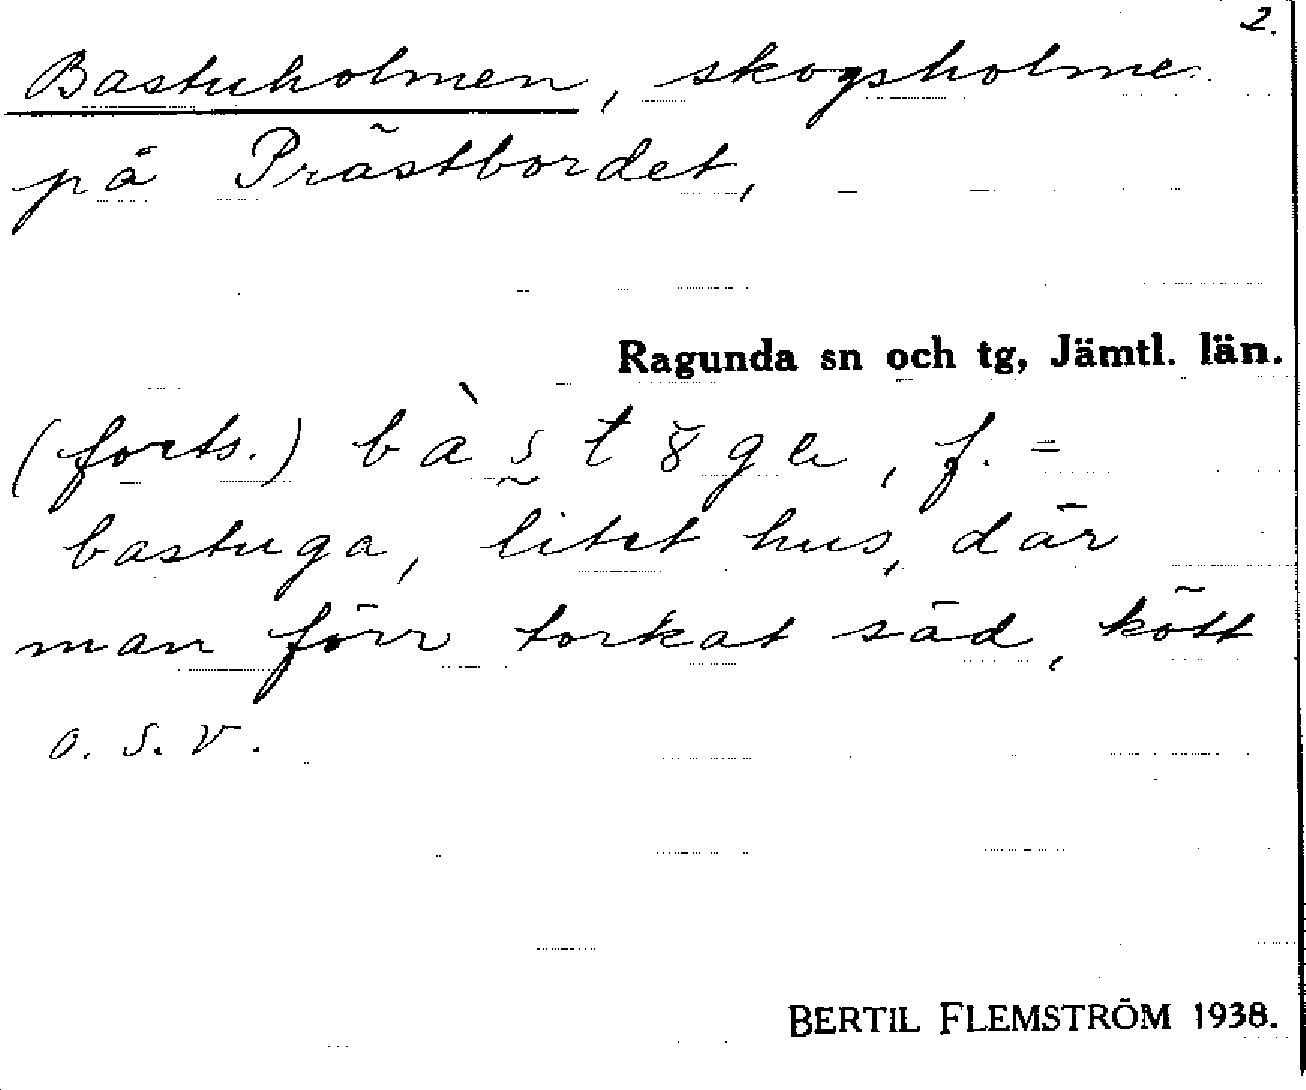 2.
Bastuholmen, skogsholme
på Prästbordet,
Ragunda sn och tg, Jämtl. län.
(forts.) f. =
bastuga, litet hus, där
man förr torkat säd, kött
o. s. v.
BERTIL FLEMSTRÖM 1938.